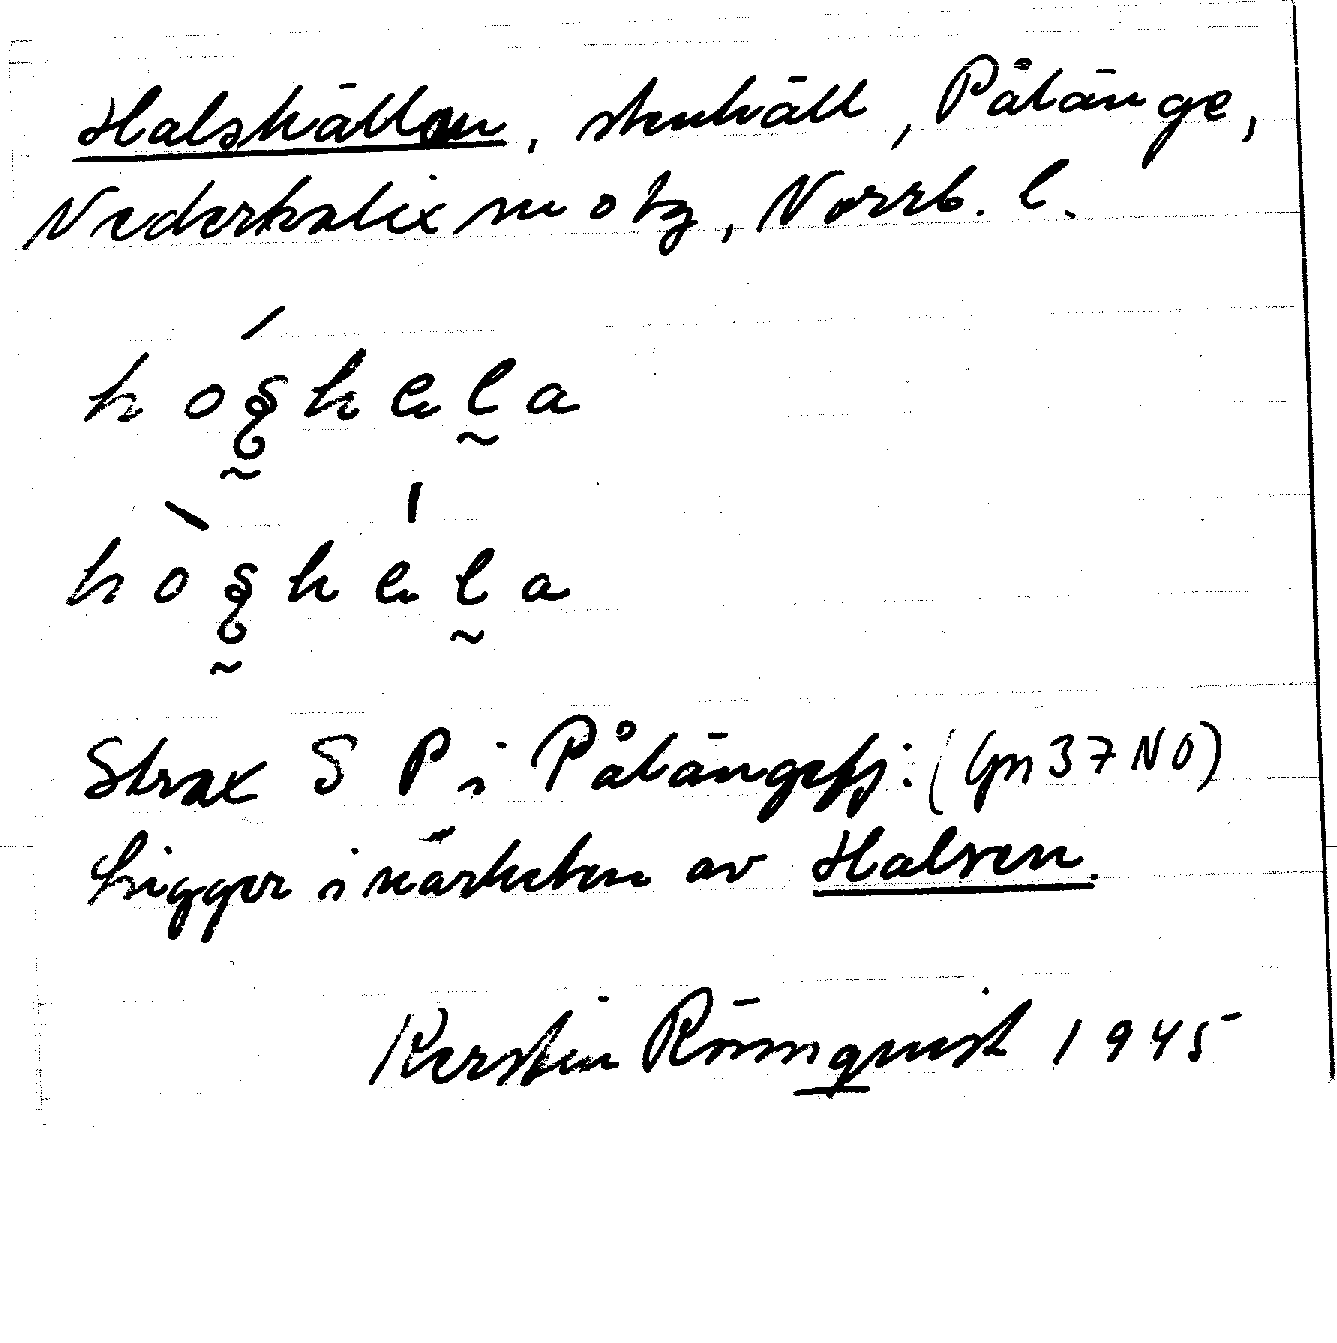 Halshällan, stenhäll, Pålänge,
Nederkalix sn o tg, Norrb. l.
Strax S P i Pålängefj: (Gn 37 NO)
Ligger i närheten av Halsen.
Kerstin Rönnquist 1945